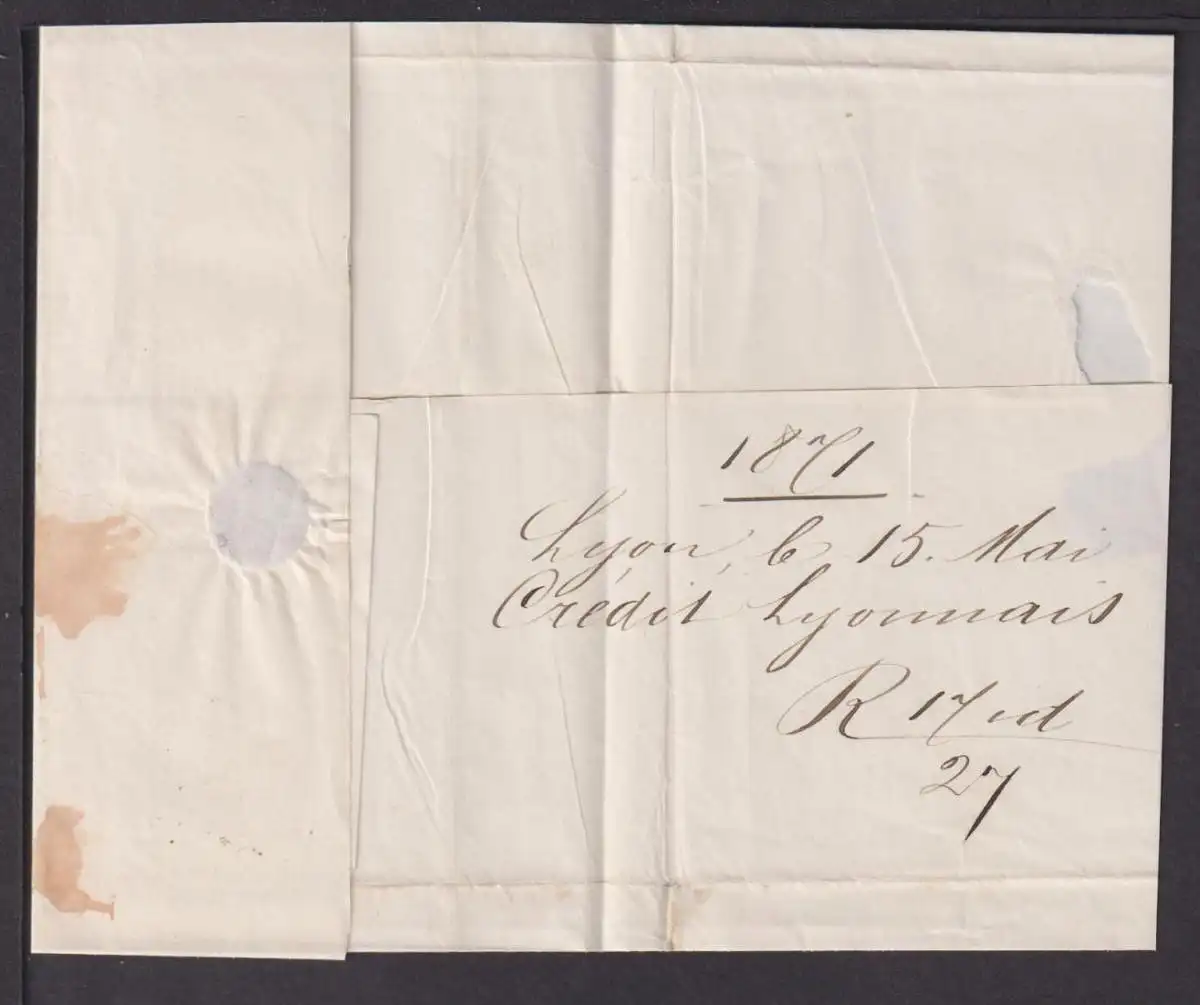 1871
Lyon, le 15. Mai
Crédit Lyonnais
R 17 id
27